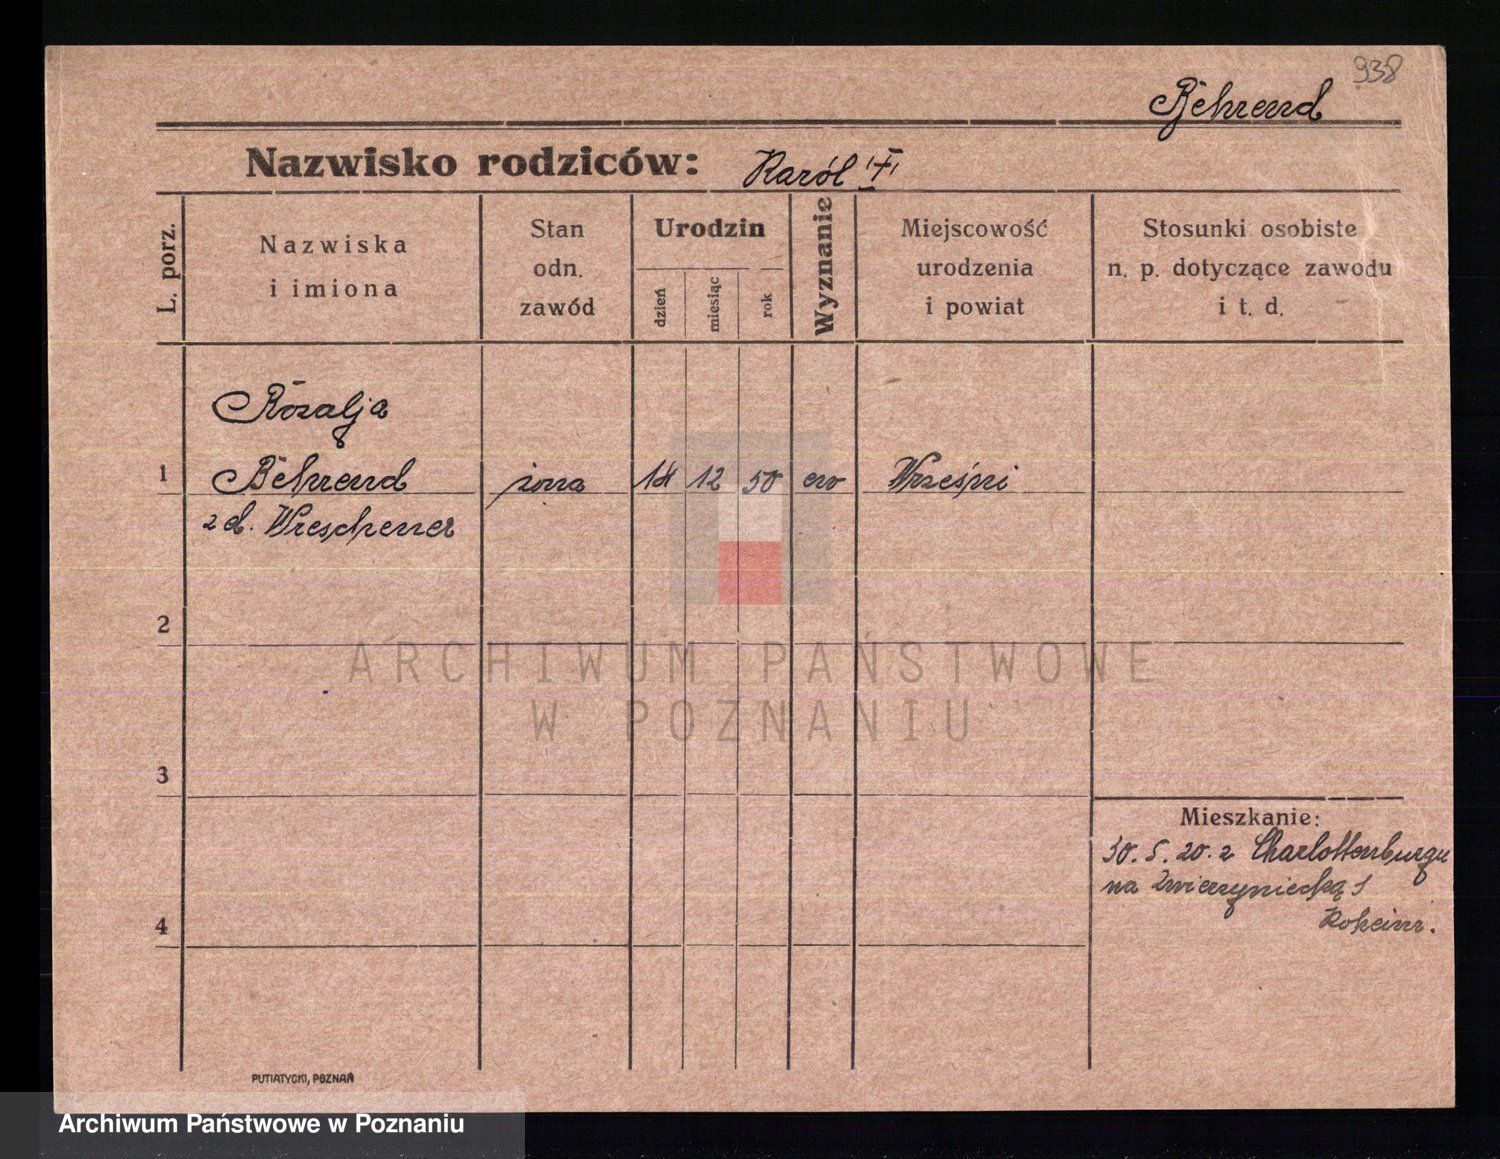 938
Behrend
Nazwisko rodziców: Karól
L. porz.
Nazwiska
i imiona
Stan
odn.
zawód
Urodzin
dzień
miesiąc
rok
Wyznanie
Miejscowość
urodzenia
i powiat
Stosunki osobiste
n. p. dotyczące zawodu
i t. d.
Rózalja
1 Behrend żona 12 50 ew
z d. Wreschener
2
ARCHIWUM PAŃSTWOWE
W POZNANIU
3
Mieszkanie:
30. 5. 20. z Charlottenburgu
na Zwierzyniecką
4
PUTIATYCKI, POZNAŃ
Archiwum Państwowe w Poznaniu